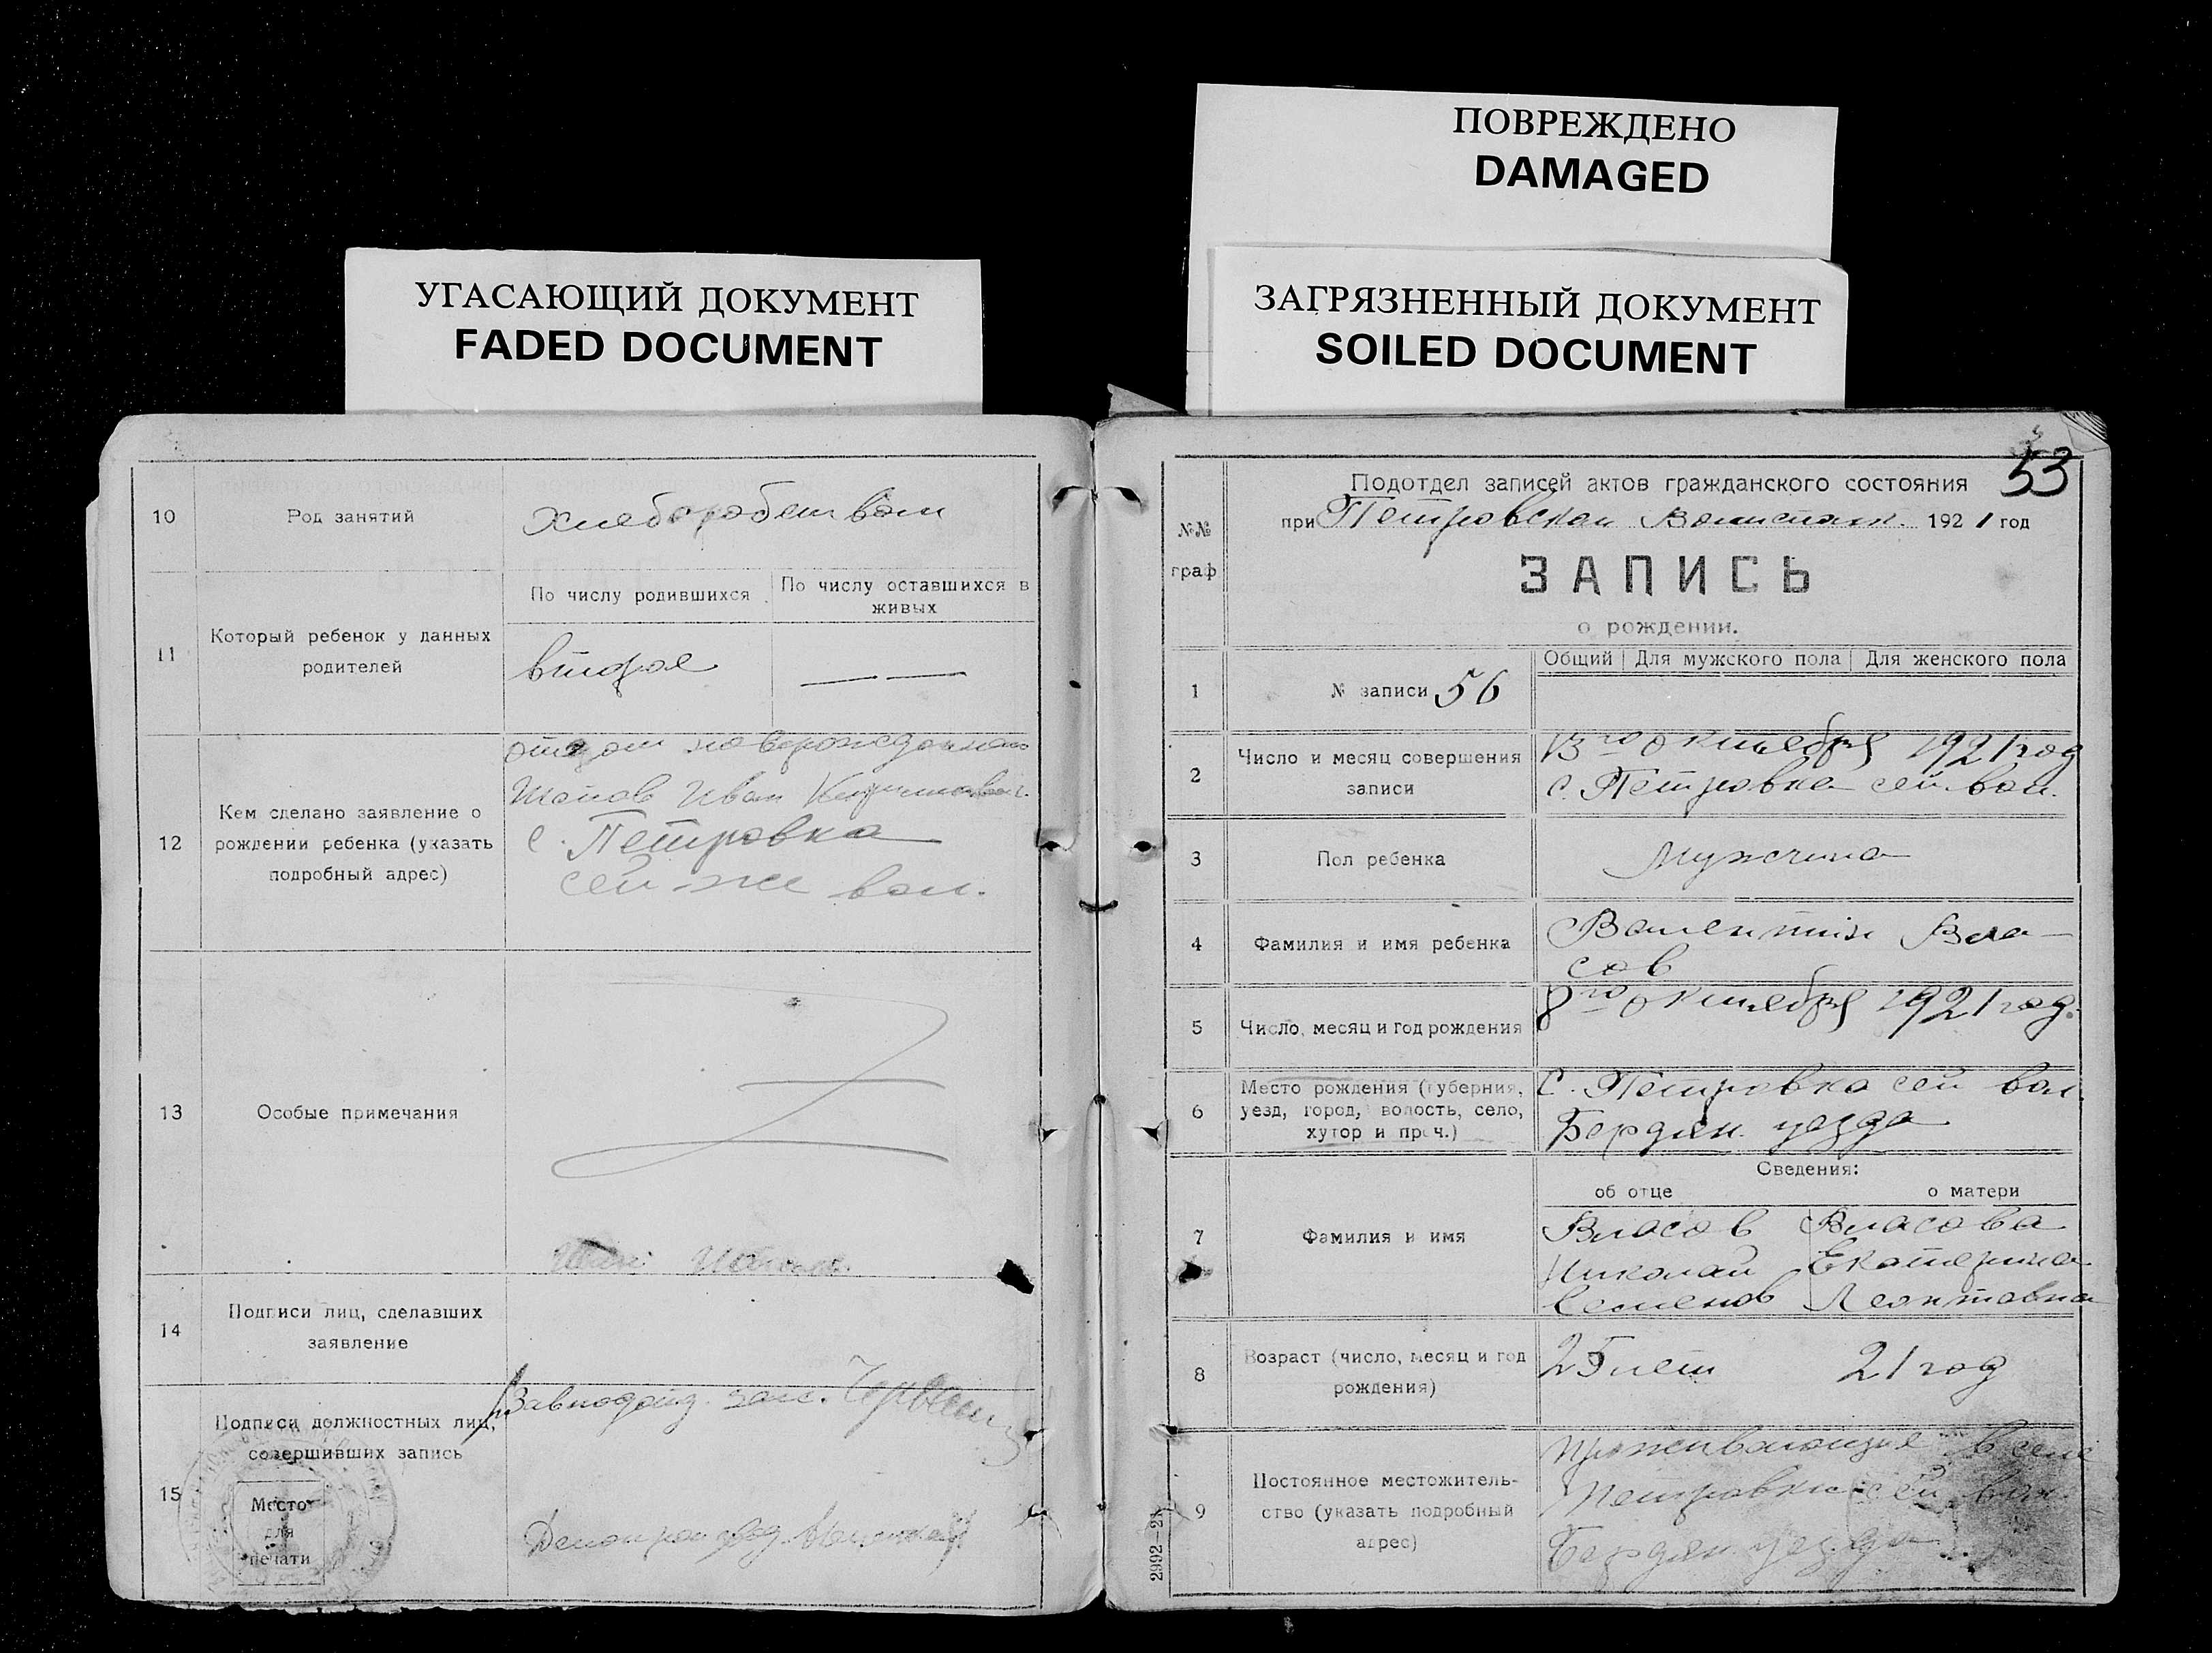 ПОВРЕЖДЕНО
DAMAGED
УГАСАЮЩИЙ ДОКУМЕНТ
FADED DOCUMENT
ЗАГРЯЗНЕННЫЙ ДОКУМЕНТ
SOILED DOCUMENT
10
Род занятий
Хлеборобством
11
Который ребенок у данных
родителей
По числу родившихся
По числу оставшихся в
живых
второе
— —
12
Кем сделано заявление о
рождении ребенка (указать
подробный адрес)
отцом новорожденного
Иван
с. Петровка
сей-же вол.
13
Особые примечания
14
Подписи лиц, сделавших
заявление
15
Подписи должностных лиц,
совершивших запись
Место
для
печати
Завподотд. запс.
Делопроизвод.
53
№№
граф
Подотдел записей актов гражданского состояния
при Петровском Волисполк. 1921 год
ЗАПИСЬ
о рождении.
1
№ записи 56
Общий
Для мужского пола
Для женского пола
2
Число и месяц совершения
записи
13го октября 1921 год
с. Петровка сей вол.
3
Пол ребенка
Мужчина
4
Фамилия и имя ребенка
Валентин Вла-
сов
5
Число, месяц и год рождения
8го октября 1921 год.
6
Место рождения (губерния,
уезд, город, волость, село,
хутор и проч.)
С. Петровка сей вол.
Бердян. уезда
Сведения:
об отце
о матери
7
Фамилия и имя
Власов
Николай
Семенов
Власова
Екатерина
Леонтовна
8
Возраст (число, месяц и год
рождения)
25 лет
21 год
9
Постоянное местожитель-
ство (указать подробный
адрес)
Проживающие в селе
Петровки сей вол.
Бердян. уезда
2992—21